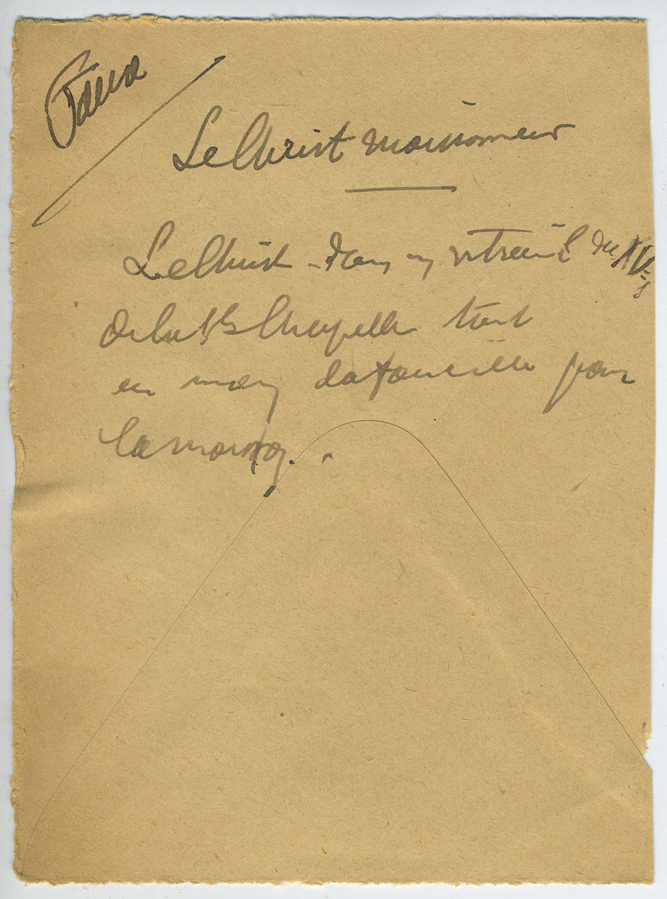 Le Christ moissonneur
Le Christ dans un vitrail du XVe s
de la Ste Chapelle tient
en main la faucille pour
la moisson.